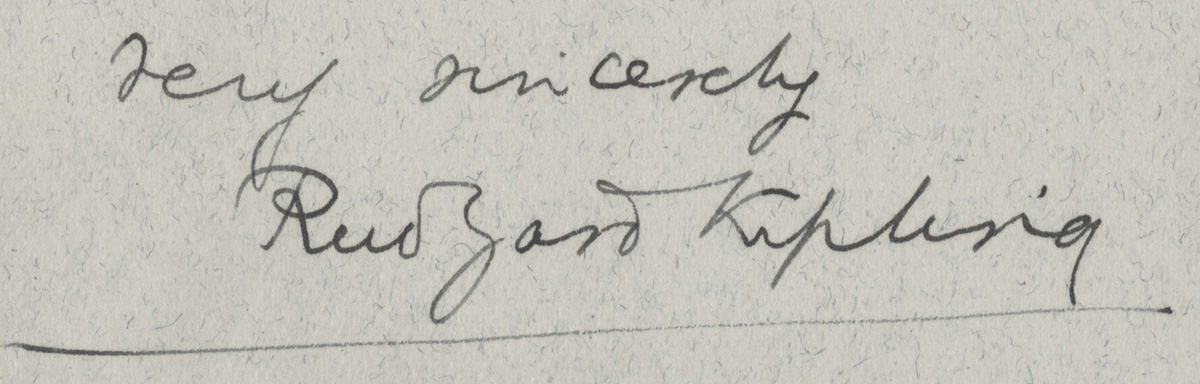 very sincerely
Rudyard Kipling